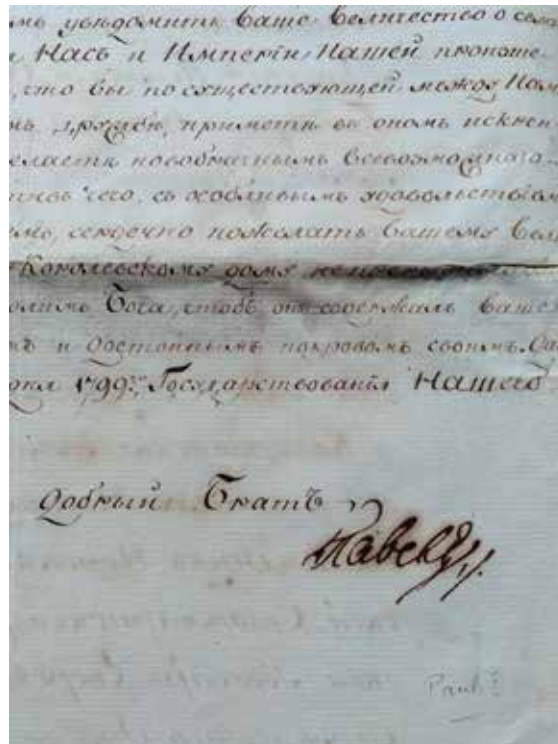 мъ увѣдомить Ваше Величество о
Насъ и Имперіи Нашей
что вы по существующей между Нами
дружбѣ, приметѣ въ ономъ
новобрачнымъ всевозможнаго
чего, съ особливымъ удовольствіем
сердечно пожелать Вашему
Королевскому дому
Бога, чтобъ онъ содержалъ Ваше
и достойнымъ покровомъ своимъ.
1799. Государствованія Нашего
добрый Братъ
Павелъ
Paul I